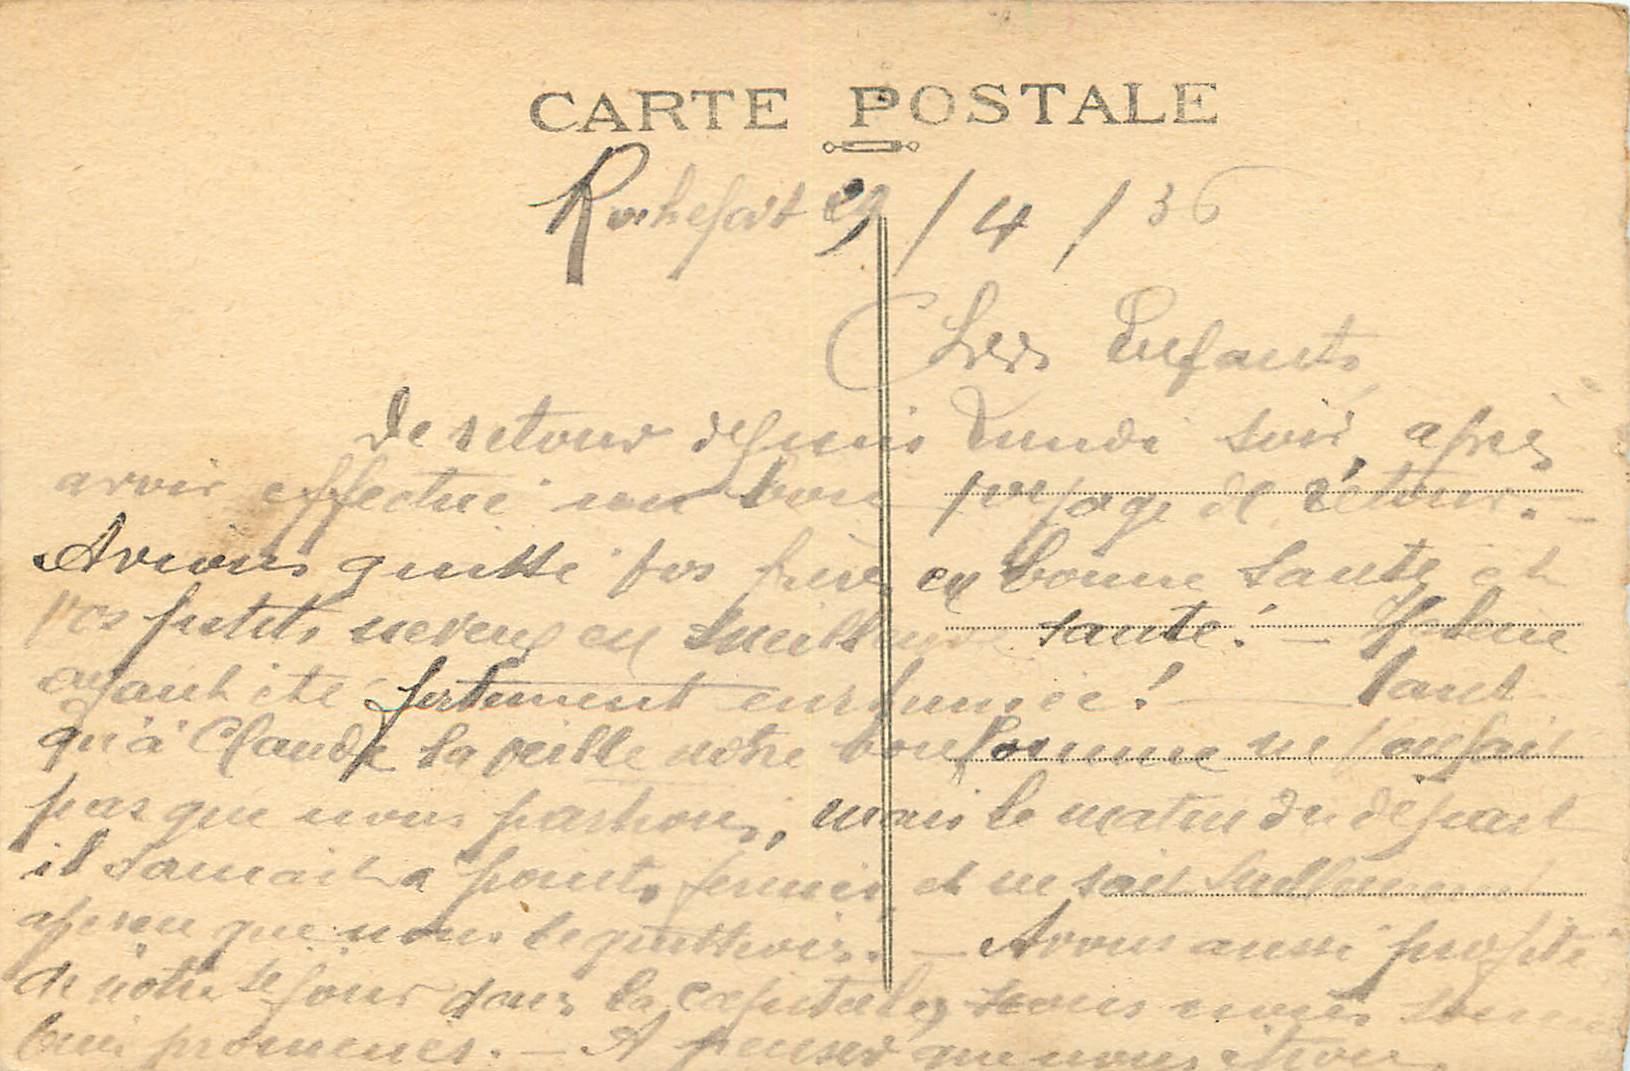 CARTE POSTALE
Rochefort 29/4/36
Chers Enfants
De retour depuis Lundi soir, après
avoir effectué un bon voyage de retour. –
Avions quitté vos frères en bonne santé et
vos petits neveux en meilleure santé! –
ayant été fortement enrhumée! — Tant
qu'à Claude la veille notre bonhomme ne voulait
pas que nous partions, mais le matin du départ
il dormait à points fermés, et ne s'est nullement
aperçu que nous le quittions. – Avons aussi profité
de notre séjour dans la capitale, nous nous sommes
bien promenés. – A penser que nous étions